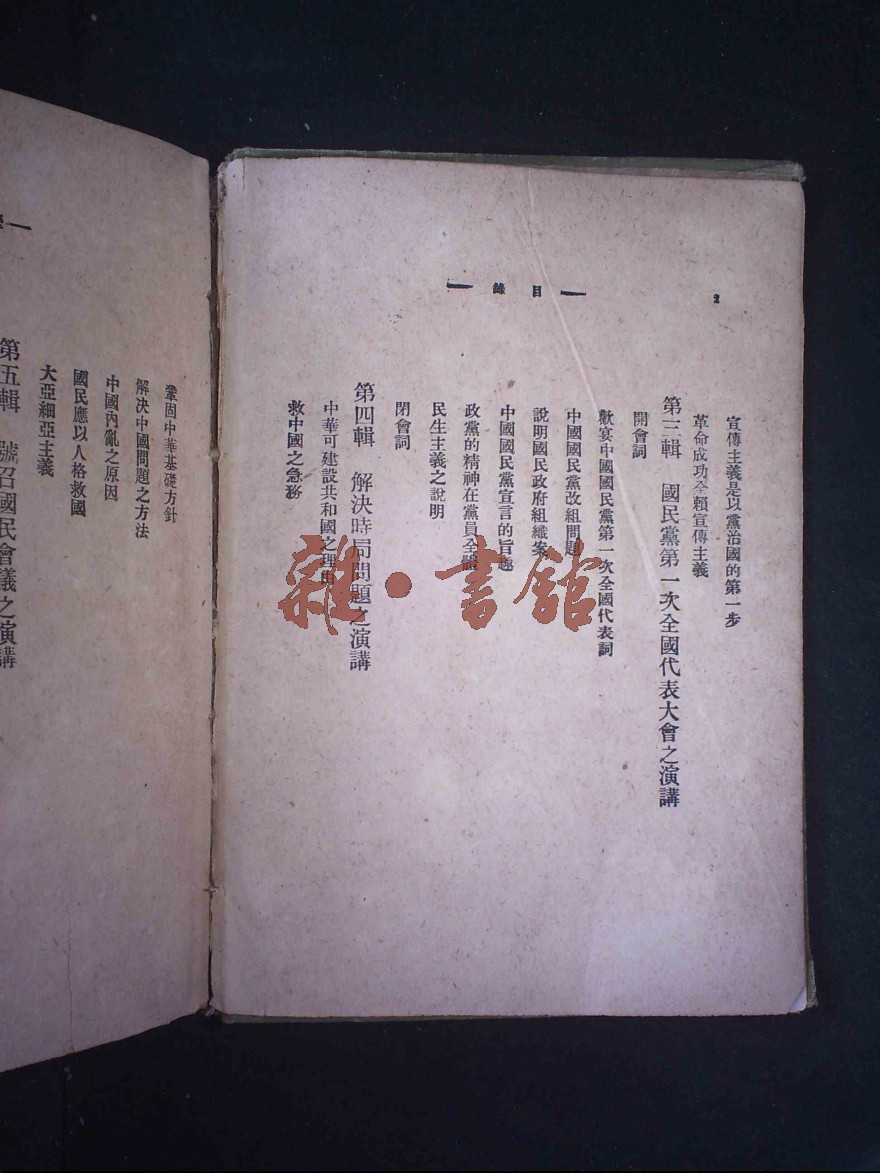 2
目錄
宣傳主義是以黨治國的第一步
革命成功全賴宣傳主義
第三輯　國民黨第一次全國代表大會之演講
開會詞
歡宴中國國民黨第一次全國代表詞
中國國民黨改組問題
說明國民政府組織案
中國國民黨宣言的旨趣
政黨的精神在黨員全體
民生主義之說明
閉會詞
第四輯　解決時局問題之演講
中華可建設共和國之理由
救中國之急務
鞏固中華基礎方針
解決中國問題之方法
中國內亂之原因
國民應以人格救國
大亞細亞主義
第五輯　號召國民會議之演講
雜·書館